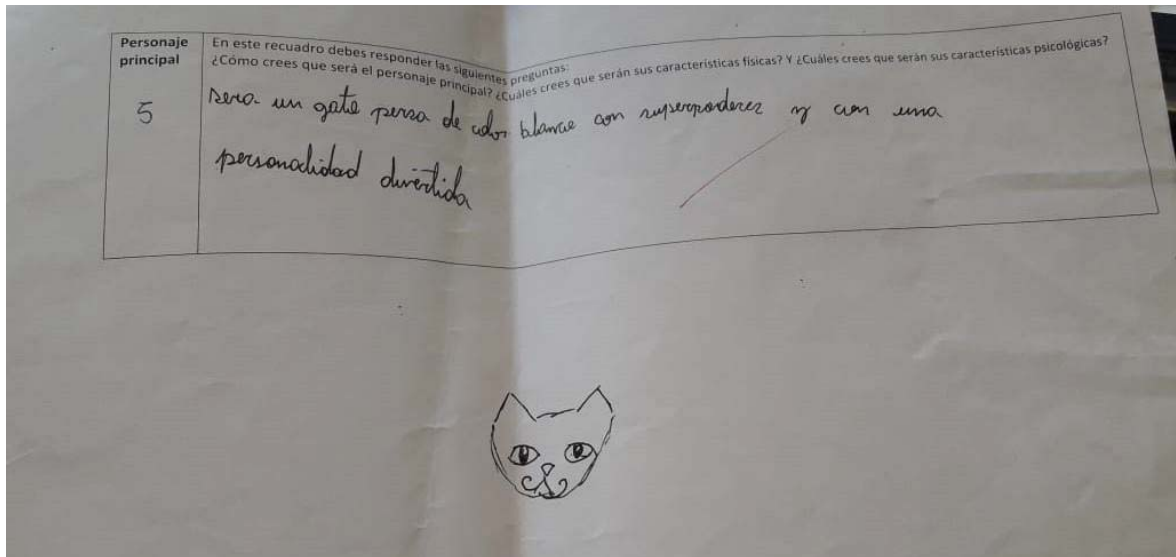 Personaje
principal
En este recuadro debes responder las siguientes preguntas:
¿Cómo crees que será el personaje principal? ¿Cuáles crees que serán sus características físicas? Y ¿Cuáles crees que serán sus características psicológicas?
5
sera un gato persa de color blanco con superpoderez y con una
personalidad divertida